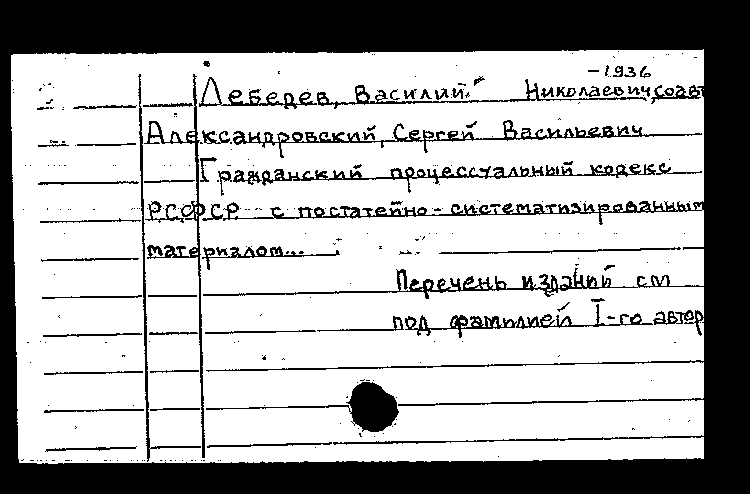 -1936
Лебедев, Василий Николаевич, соавт
Александровский, Сергей Васильевич
Гражданский процессуальный кодекс
РСФСР с постатейно-систематизированным
материалом...
Перечень изданий см
под фамилией I-го автор